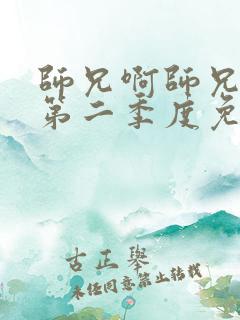 師兄啊師兄
第二季度免
古正舉
未經同意禁止轉載